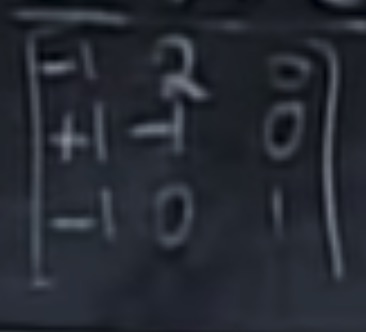 -1 2 0
+1 -1 0
-1 0 1